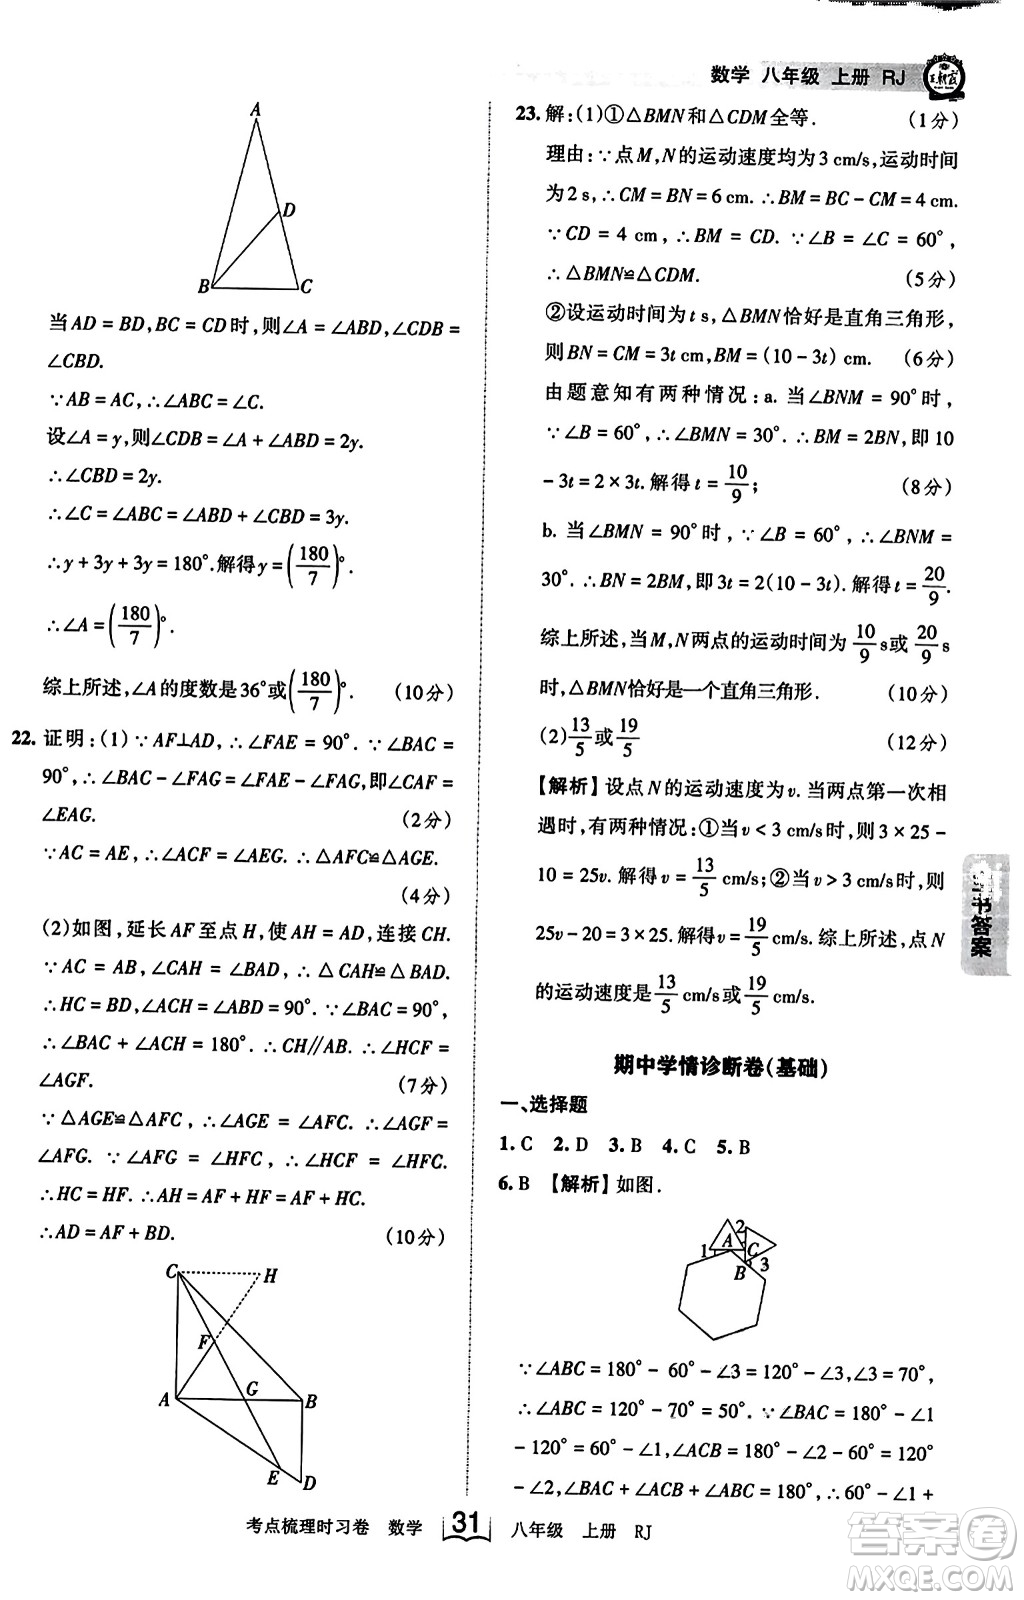 数学 八年级 上册 RJ
A
D
B
C
当AD=BD,BC=CD时,则∠A=∠ABD,∠CDB=
∠CBD.
∵AB=AC,∴∠ABC=∠C.
设∠A=y,则∠CDB=∠A+∠ABD=2y.
∴∠CBD=2y.
∴∠C=∠ABC=∠ABD+∠CBD=3y.
∴y+3y+3y=180°.解得y=(180/7)°.
∴∠A=(180/7)°.
综上所述,∠A的度数是36°或(180/7)°. (10分)
22. 证明:(1)∵AF⊥AD,∴∠FAE=90°.∵∠BAC=
90°,∴∠BAC-∠FAG=∠FAE-∠FAG,即∠CAF=
∠EAG. (2分)
∵AC=AE,∴∠ACF=∠AEG.∴△AFC≌△AGE.
(4分)
(2)如图,延长AF至点H,使AH=AD,连接CH.
∵AC=AB,∠CAH=∠BAD,∴△CAH≌△BAD.
∴HC=BD,∠ACH=∠ABD=90°.∵∠BAC=90°,
∴∠BAC+∠ACH=180°.∴CH∥AB.∴∠HCF=
∠AGF. (7分)
∵△AGE≌△AFC,∴∠AGE=∠AFC.∴∠AGF=
∠AFG.∵∠AFG=∠HFC,∴∠HCF=∠HFC.
∴HC=HF.∴AH=AF+HF=AF+HC.
∴AD=AF+BD. (10分)
C
H
F
A
G
B
E
D
23. 解:(1)①△BMN和△CDM全等. (1分)
理由:∵点M,N的运动速度均为3 cm/s,运动时间
为2 s,∴CM=BN=6 cm.∴BM=BC-CM=4 cm.
∵CD=4 cm,∴BM=CD.∵∠B=∠C=60°,
∴△BMN≌△CDM. (5分)
②设运动时间为t s,△BMN恰好是直角三角形,
则BN=CM=3t cm,BM=(10-3t) cm. (6分)
由题意知有两种情况:a.当∠BNM=90°时,
∵∠B=60°,∴∠BMN=30°.∴BM=2BN,即10
-3t=2×3t.解得t=10/9; (8分)
b.当∠BMN=90°时,∵∠B=60°,∴∠BNM=
30°.∴BN=2BM,即3t=2(10-3t).解得t=20/9.
综上所述,当M,N两点的运动时间为10/9 s或20/9 s
时,△BMN恰好是一个直角三角形. (10分)
(2)13/5或19/5 (12分)
【解析】设点N的运动速度为v.当两点第一次相
遇时,有两种情况:①当v<3 cm/s时,则3×25-
10=25v.解得v=13/5 cm/s;②当v>3 cm/s时,则
25v-20=3×25.解得v=19/5 cm/s.综上所述,点N
的运动速度是13/5 cm/s或19/5 cm/s.
期中学情诊断卷(基础)
一、选择题
1.C 2.D 3.B 4.C 5.B
6.B 【解析】如图.
2
A
1
C
B
3
∵∠ABC=180°-60°-∠3=120°-∠3,∠3=70°,
∴∠ABC=120°-70°=50°.∵∠BAC=180°-∠1
-120°=60°-∠1,∠ACB=180°-∠2-60°=120°
-∠2,∠BAC+∠ACB+∠ABC=180°,∴∠1+
书答案
考点梳理时习卷 数学 31 八年级 上册 RJ
答案卷
MXQE.COM